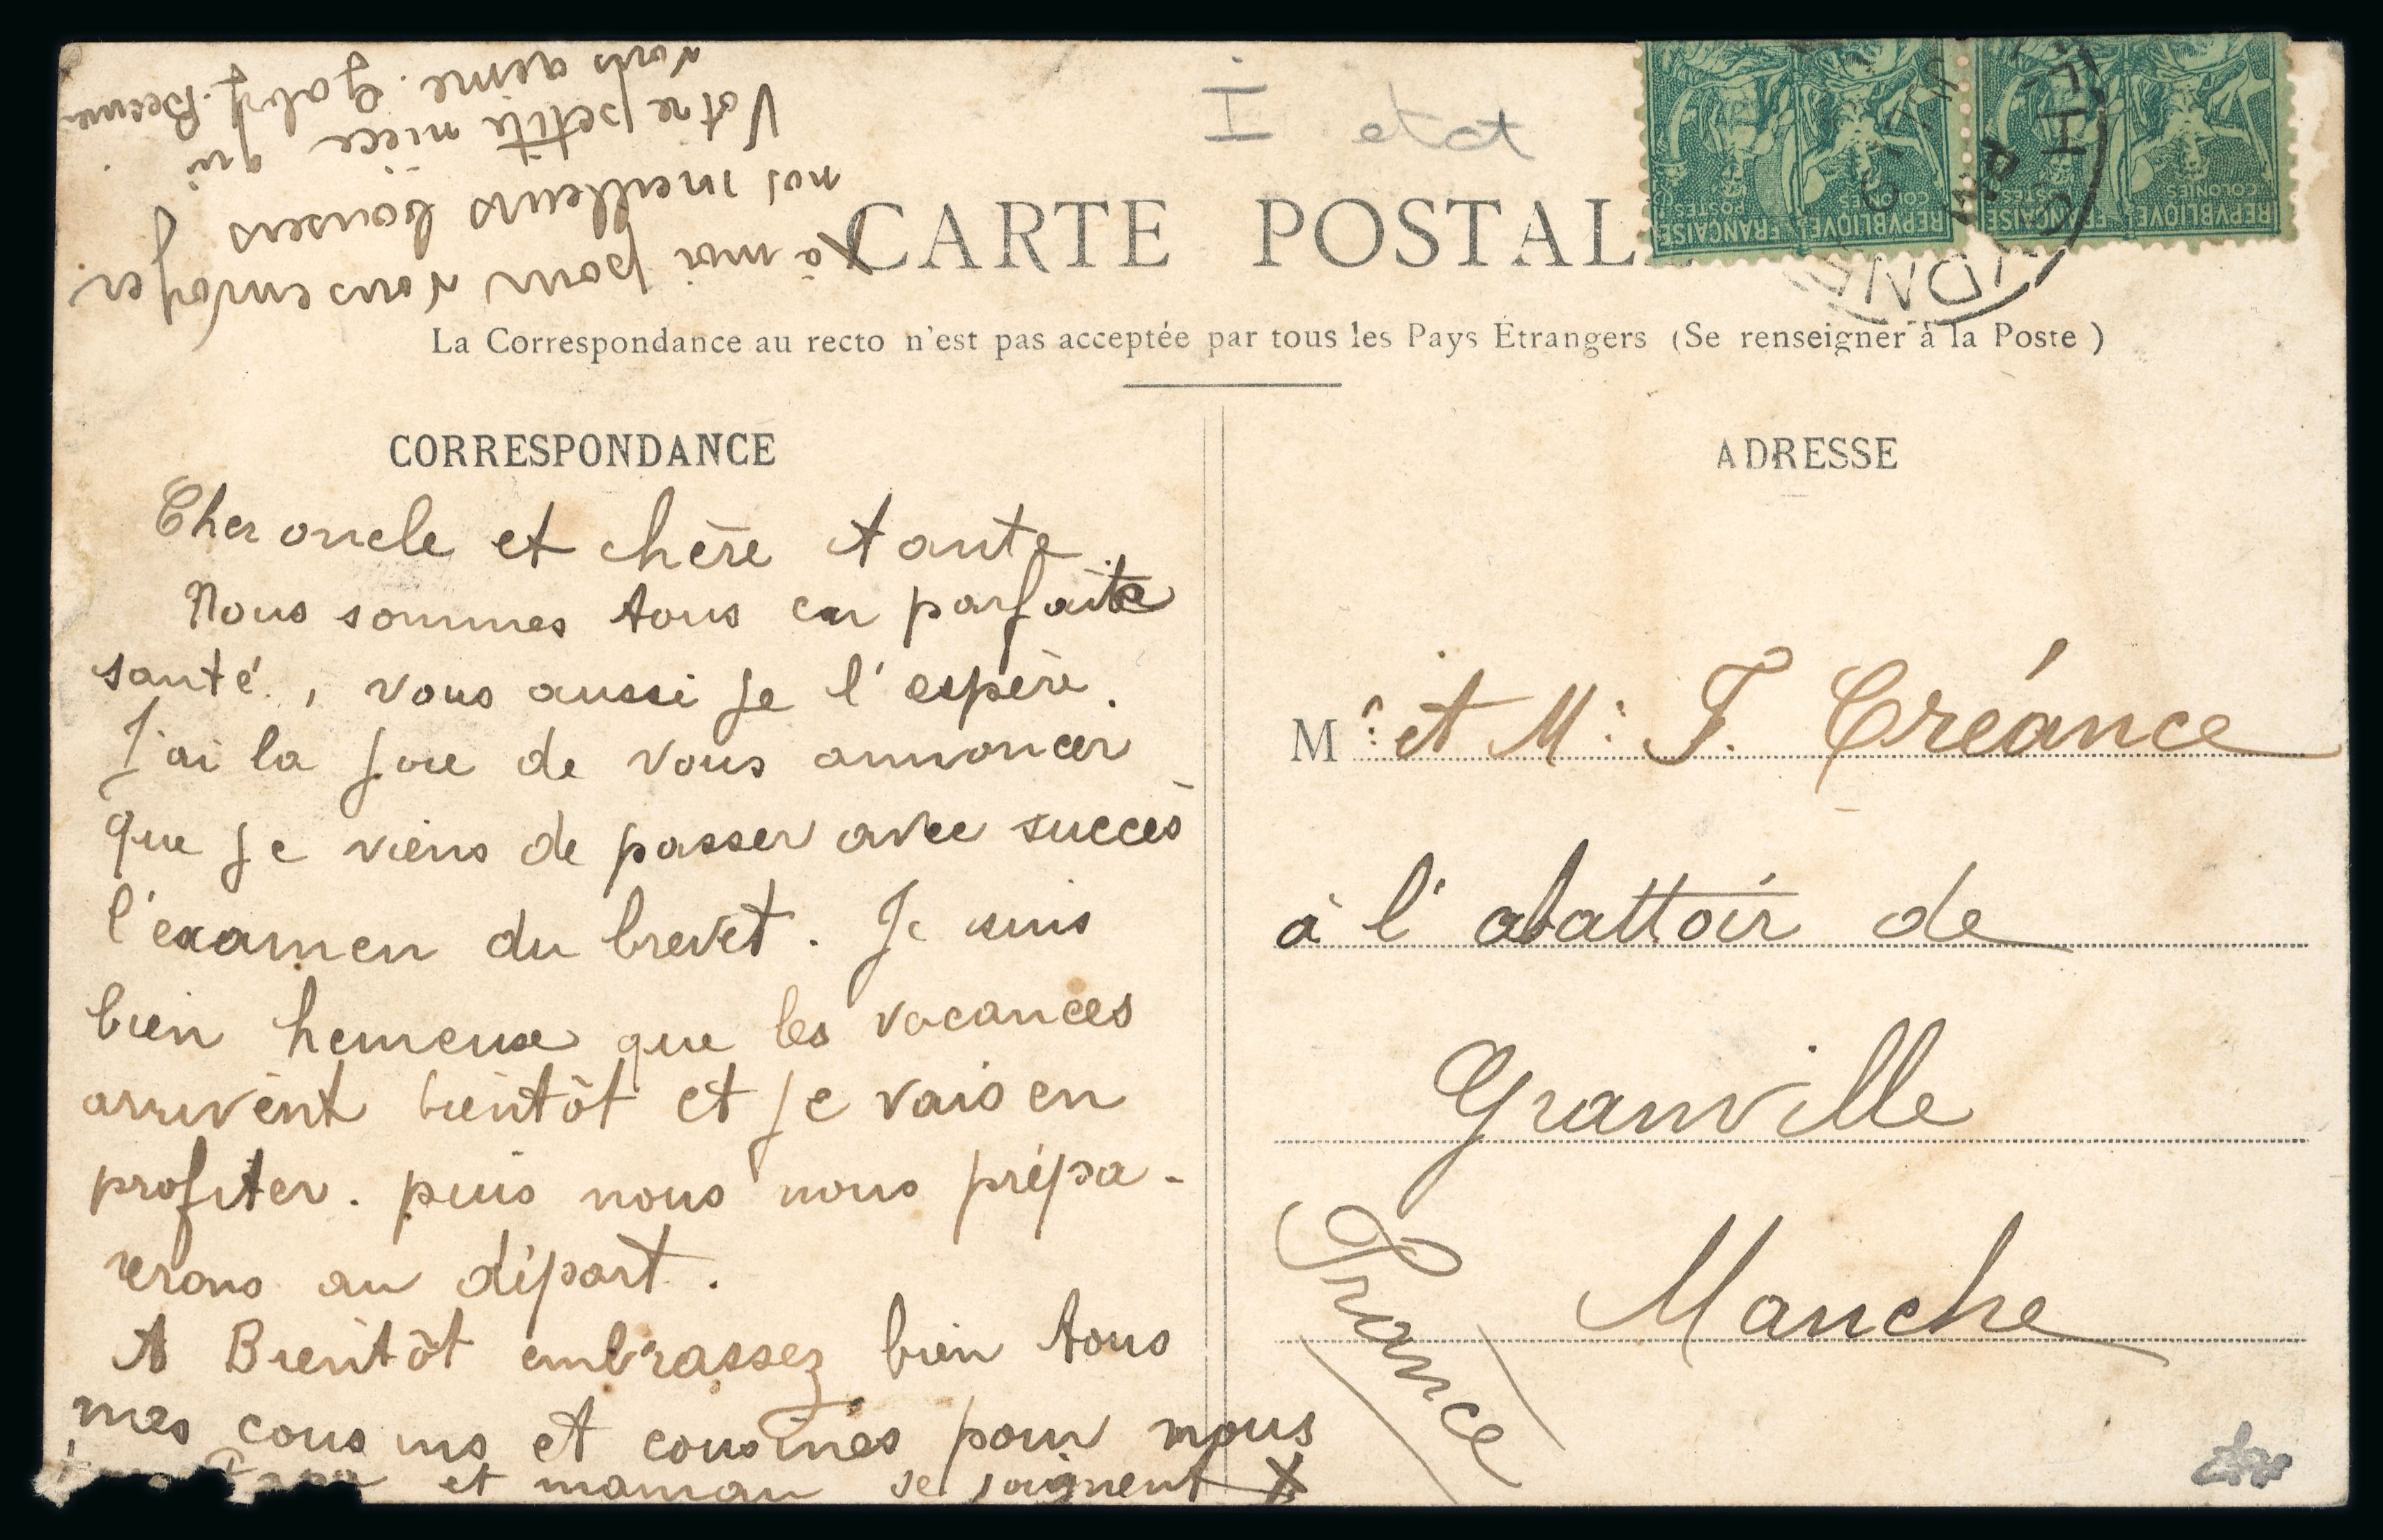 I etat
CARTE POSTAL
La Correspondance au recto n'est pas acceptée par tous les Pays Étrangers (Se renseigner à la Poste )
CORRESPONDANCE
Cher oncle et chère tante
Nous sommes tous en parfaite
santé, vous aussi je l'espère.
J'ai la joie de vous annoncer
que je viens de passer avec succès
l'examen du brevet. Je suis
bien heureuse que les vacances
arrivent bientôt et je vais en
profiter. puis nous nous prépa-
rerons au départ.
A Bientôt embrassez bien tous
mes cousins et cousines pour nous
Papa et maman se joignent X
X à moi pour vous envoyer
nos meilleurs baisers
Votre petite nièce qui
vous aime. Gaby.
ADRESSE
Mr et M: F. Créance
à l'abattoir de
Granville
Manche
France
REPVBLIQVE FRANÇAISE
COLONIES POSTES
REPVBLIQVE FRANÇAISE
COLONIES POSTES